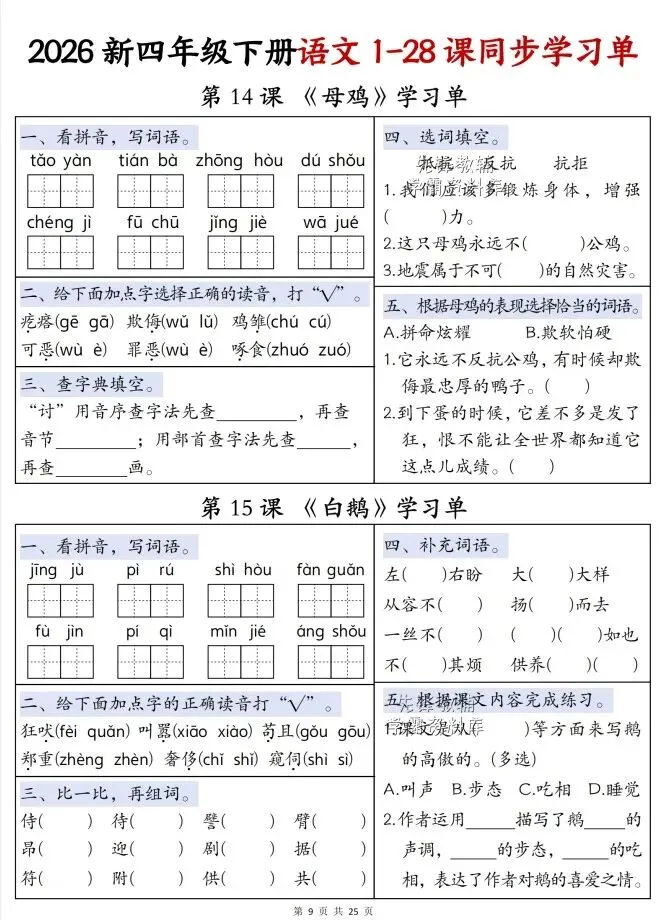 2026新四年级下册语文1-28课同步学习单
第 14 课 《母鸡》学习单
一、看拼音，写词语。
tǎo yàn tián bà zhōng hòu dú shǒu
chéng jì fū chū jǐng jiè wā jué
二、给下面加点字选择正确的读音，打“√”。
疙瘩(gē gā) 欺侮(wǔ lǔ) 鸡雏(chú cú)
可恶(wù è) 罪恶(wù è) 啄食(zhuó zuó)
三、查字典填空。
“讨”用音序查字法先查________，再查
音节________；用部首查字法先查_____，
再查________画。
四、选词填空。
抵抗 反抗 抗拒
1.我们应该多锻炼身体，增强
( )力。
2.这只母鸡永远不( )公鸡。
3.地震属于不可( )的自然灾害。
五、根据母鸡的表现选择恰当的词语。
A.拼命炫耀 B.欺软怕硬
1.它永远不反抗公鸡，有时候却欺
侮最忠厚的鸭子。( )
2.到下蛋的时候，它差不多是发了
狂，恨不能让全世界都知道它
这点儿成绩。( )
第 15 课 《白鹅》学习单
一、看拼音，写词语。
jīng jù pì rú shì hòu fàn guǎn
fù jìn pí qì mǐn jié áng shǒu
二、给下面加点字的正确读音打“√”。
狂吠(fèi quǎn) 叫嚣(xiāo xiào) 苟且(gǒu gōu)
郑重(zhèng zhèn) 奢侈(chǐ shǐ) 窥伺(shì sì)
三、比一比，再组词。
侍( ) 待( ) 譬( ) 臂( )
昂( ) 迎( ) 剧( ) 据( )
符( ) 附( ) 供( ) 共( )
四、补充词语。
左( )右盼 大( )大样
从容不( ) 扬( )而去
一丝不( ) ( )( )如也
不( )其烦 供养( )( )
五、根据课文内容完成练习。
1.课文是从( )等方面来写鹅
的高傲的。(多选)
A.叫声 B.步态 C.吃相 D.睡觉
2.作者运用_____描写了鹅____的
声调，_____的步态，_____的吃
相，表达了作者对鹅的喜爱之情。
第 9 页 共 25 页